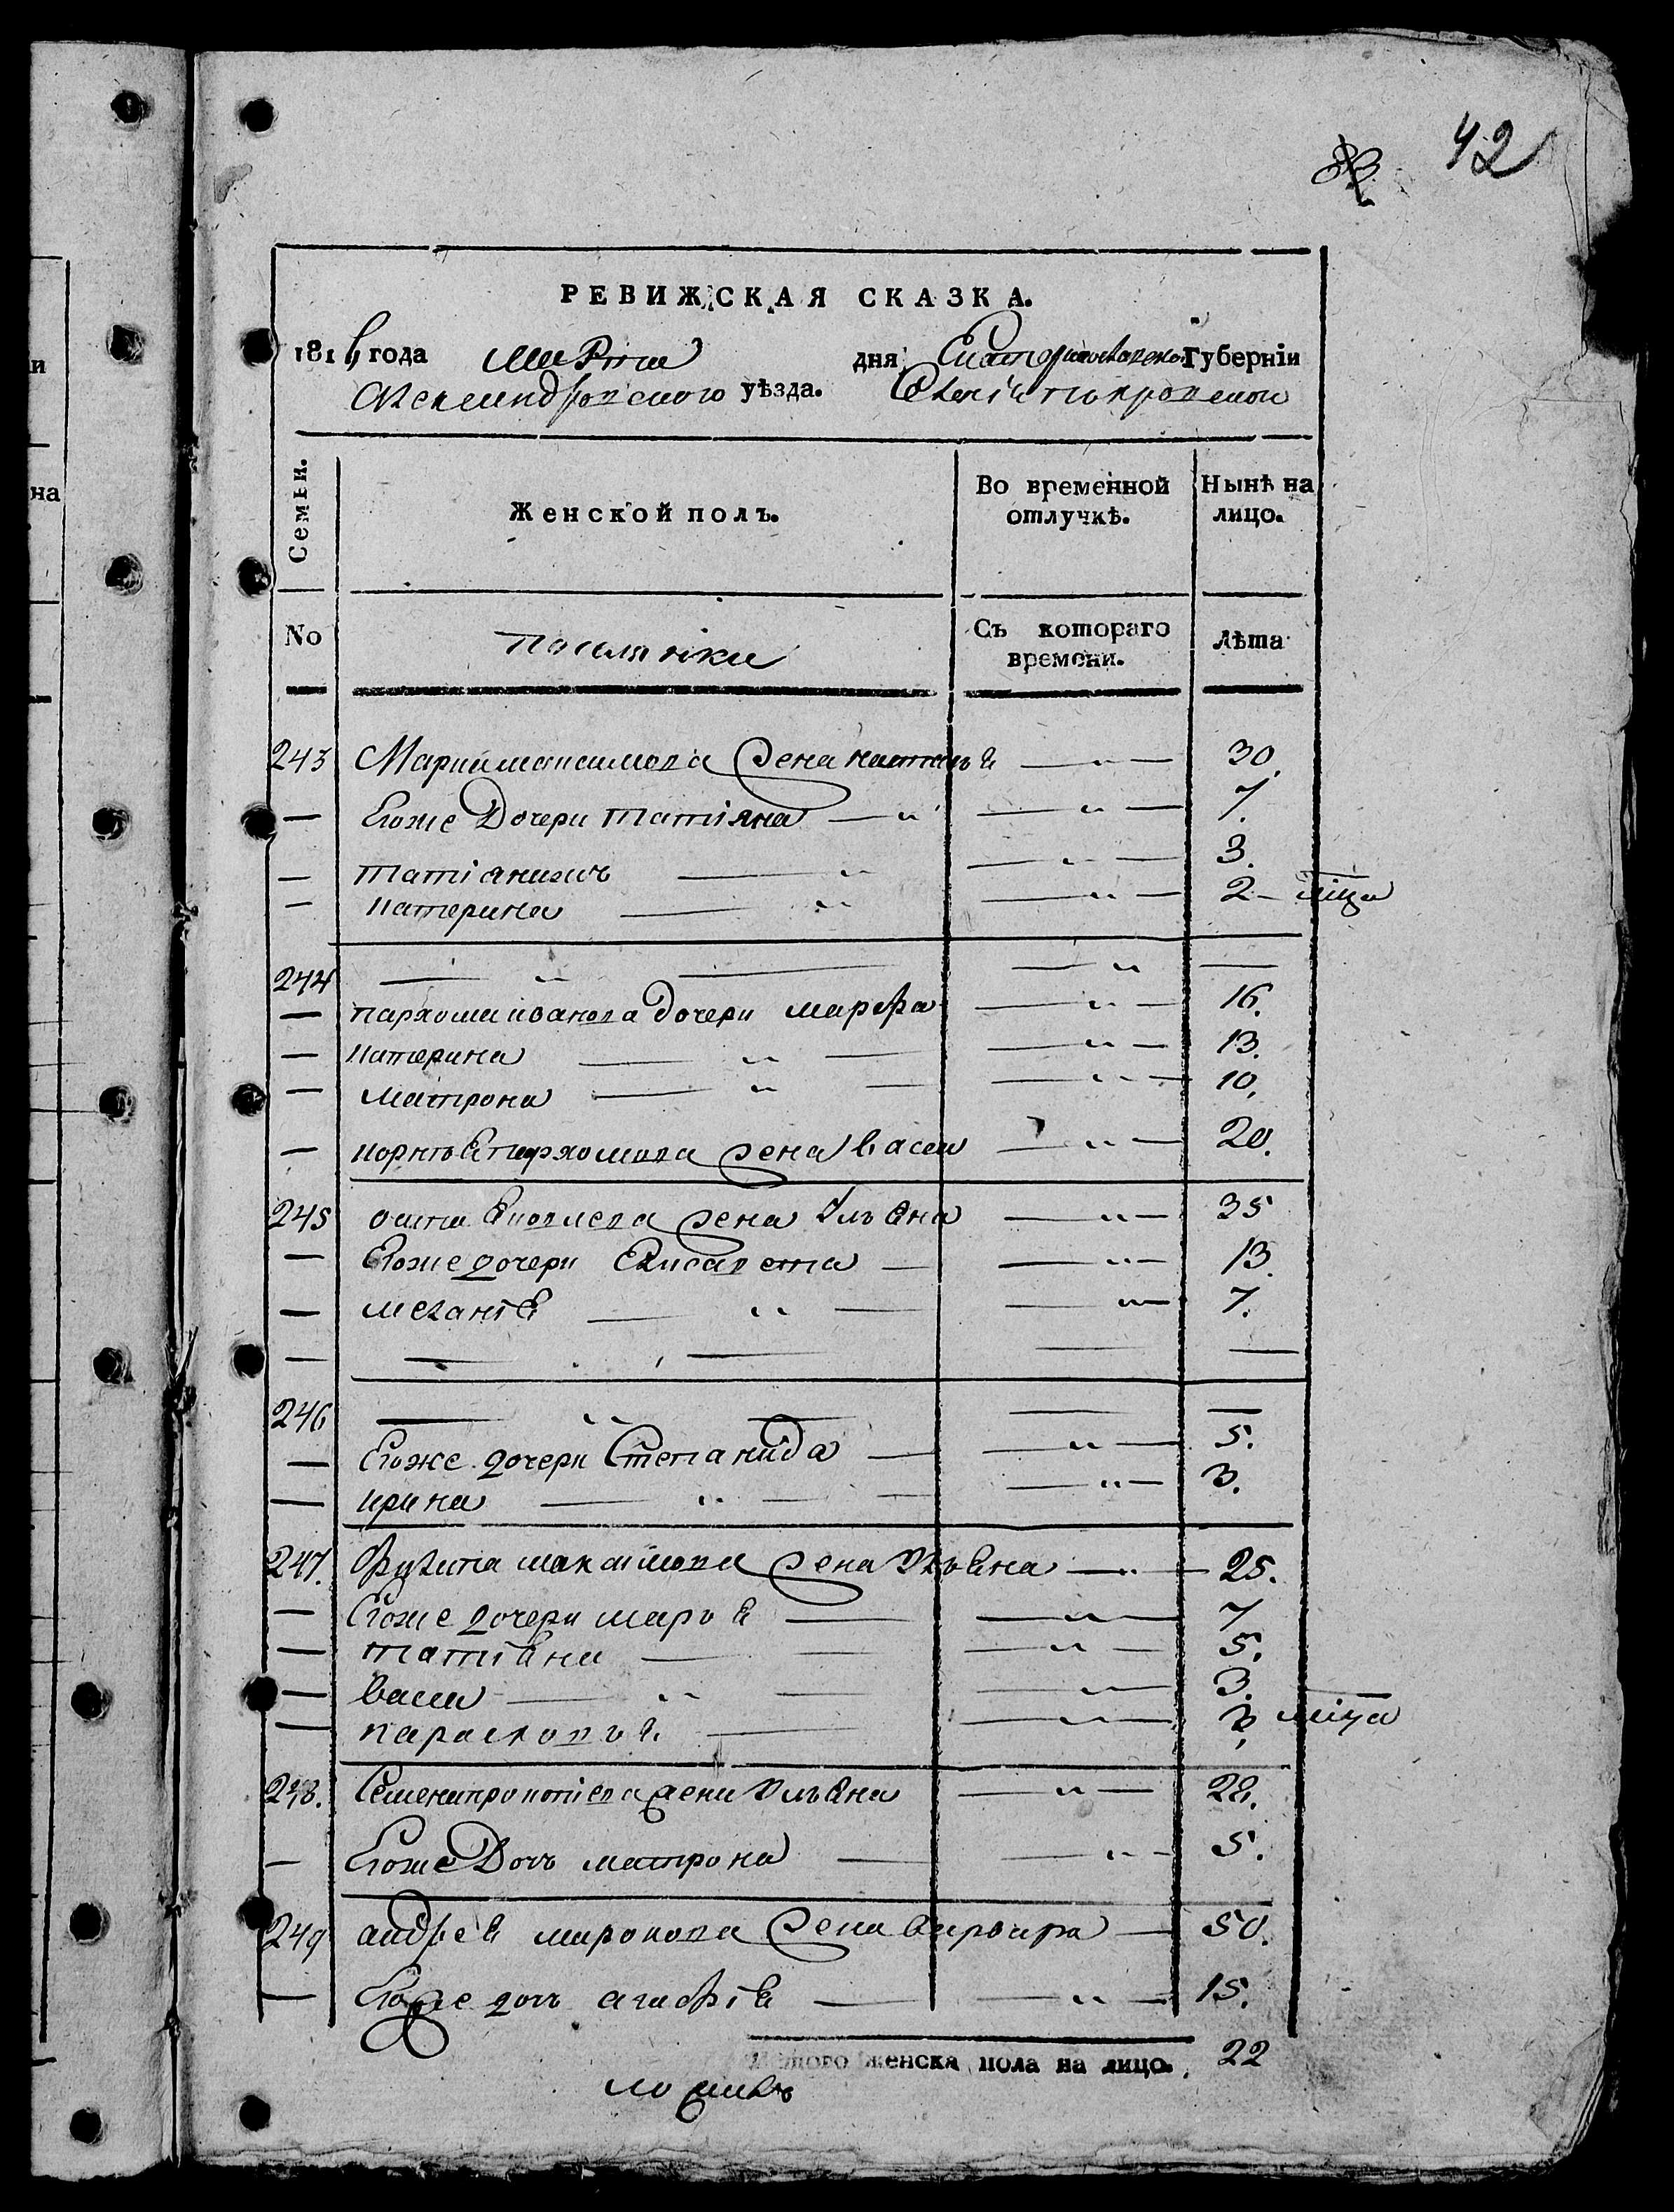 42
РЕВИЖСКАЯ СКАЗКА.
1816 года Марта дня Екатеринославской Губерніи
Александровского уѣзда.
Семьи. Женской полъ. Во временной отлучкѣ. Нынѣ на лицо.
No поселянки Съ котораго времени. Лѣта
243 Марка максимова жена наталья — „ — 30.
— Егоже Дочери татіяна — „ — „ — 7.
— татіянижъ — „ — „ — 3.
— катерина — „ — „ — 2 – мѣца
244 — „ — — „ — —
— пархома иванова дочери марфа — „ — 16.
— катерина — „ — — „ — 13.
— матрона — „ — — „ — 10.
— корнѣя пархомова жена васса — „ — 20.
245 жена Ульяна — „ — 35
— Егоже дочери Елисавета — — „ — 13.
— меланія — „ — — „ — 7.
— — — — —
246 — „ — — —
— Егоже дочери Степанида — — „ — 5.
— ирина — „ — — — „ — 3.
247. Филипа максимова жена Ульяна — „ — 25.
— Егоже дочери марья — — „ — 7
— татіяна — — — „ — 5.
— васса — „ — — „ — 3.
— парасковья — — „ — 3, мѣца
248. Семена прокопіева жена Ульяна — „ — 28.
— Егоже Дочь матрона — — „ — 5.
249 андрея миронова жена варвара — 50.
— Егоже дочь агафія — — „ — 15.
Итого женска пола на лицо. 22